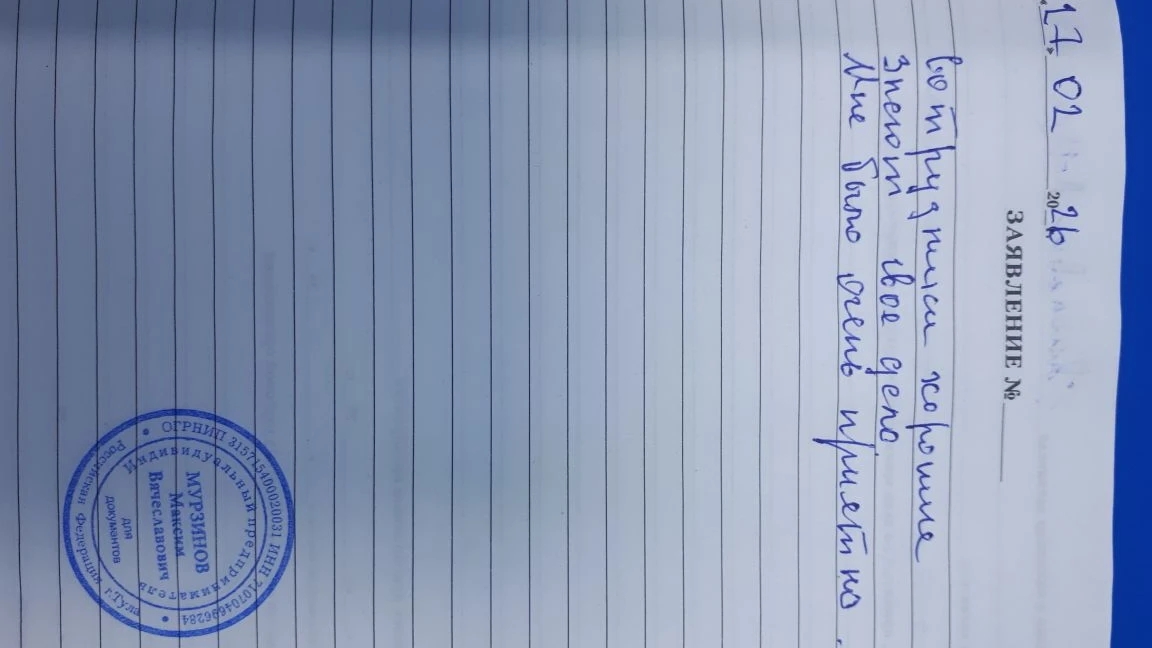 17. 02 2026
ЗАЯВЛЕНИЕ №
Сотрудники хорошие
Знают свое дело
Мне было очень приятно.
ОГРНИП 315715400020031 ИНН 710704696284
Российская Федерация г.Тула
Индивидуальный предприниматель
МУРЗИНОВ
Максим
Вячеславович
для
документов